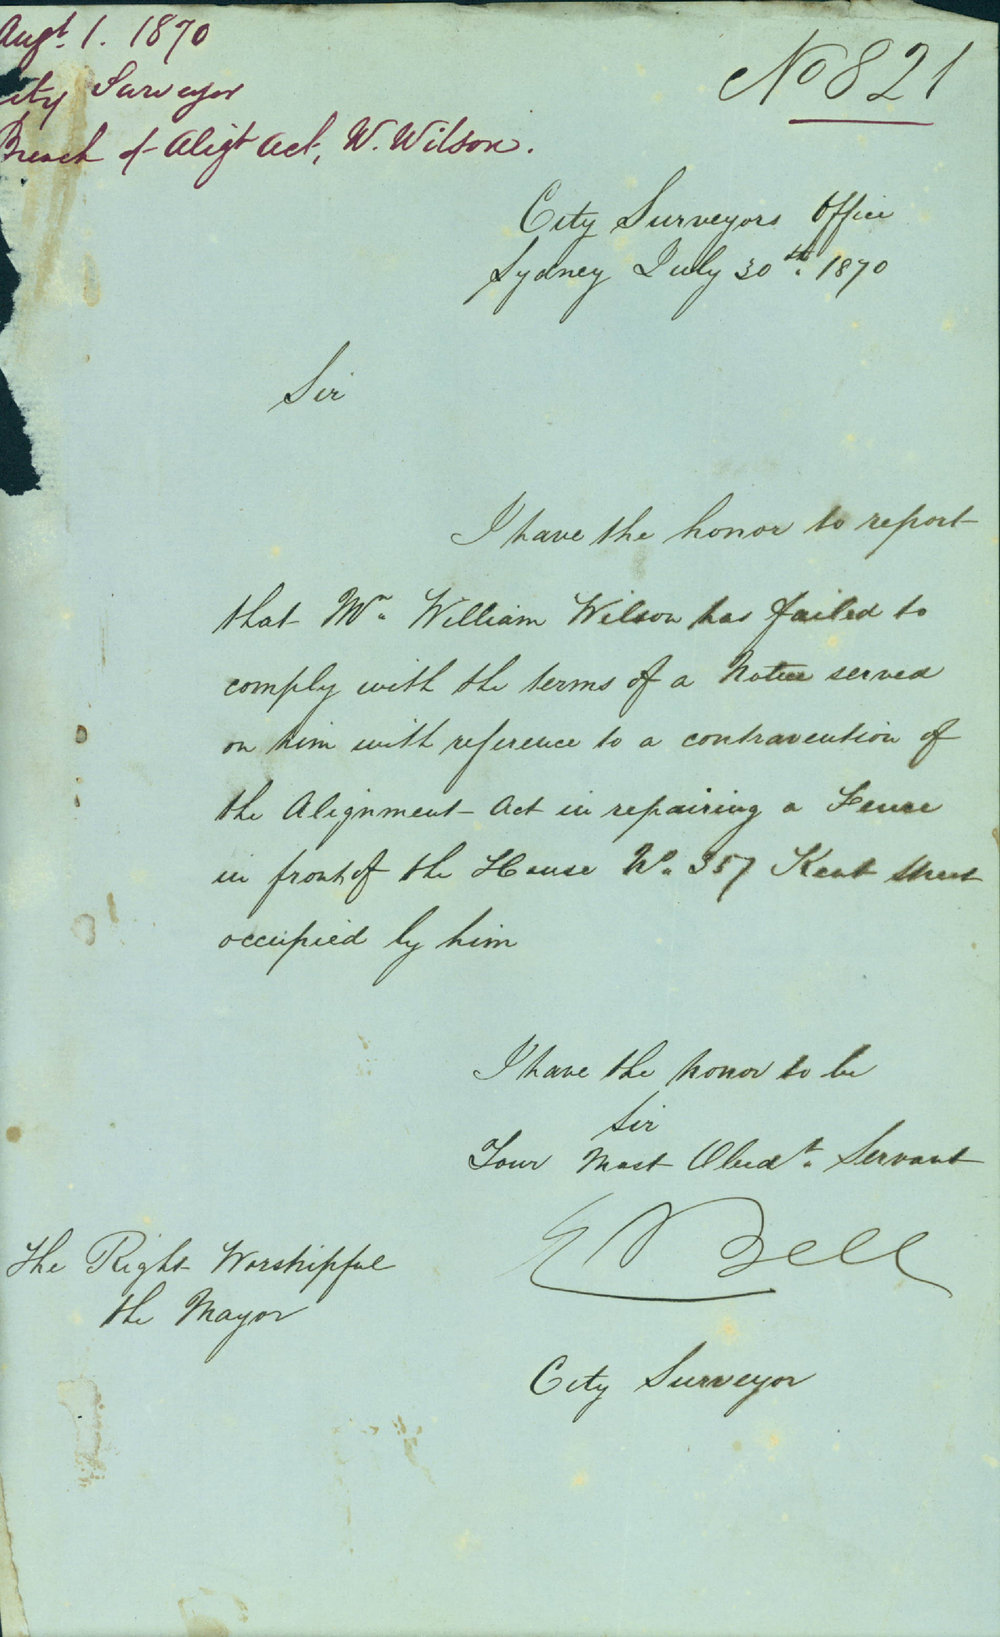 Augt. 1. 1870
City Surveyor
Breach of Aligt Act, W. Wilson.
No 821
City Surveyors Office
Sydney July 30th. 1870
Sir
I have the honor to report
that Mr. William Wilson has failed to
comply with the terms of a Notice served
on him with reference to a contravention of
the Alignment Act in repairing a Fence
in front of the House No. 357 Kent Street
occupied by him
I have the honor to be
Sir
Your Most Obedt. Servant
E Bell
City Surveyor
The Right Worshipful
the Mayor